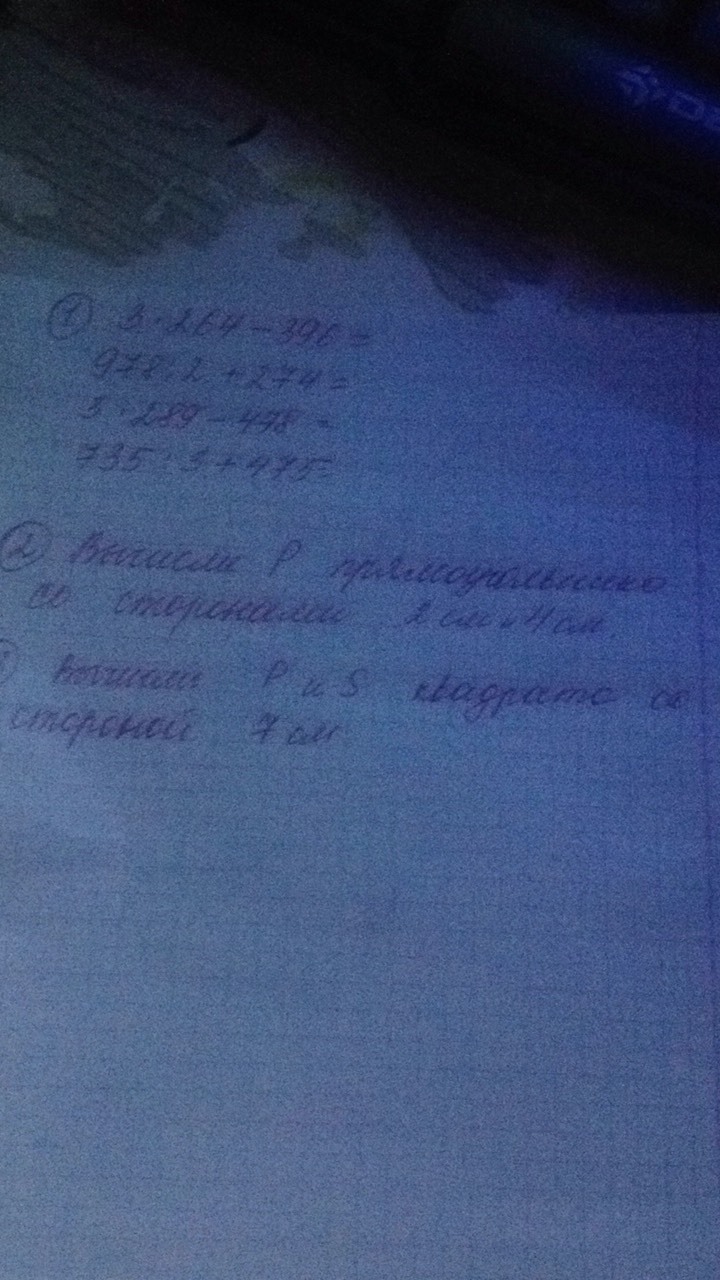 ① 3·264-396=
978:2+274=
3·289-478=
735:3+475=
② Вычисли P прямоугольника
со сторонами 2 см и 4 см.
Вычисли P и S квадрата со
стороной 7 см